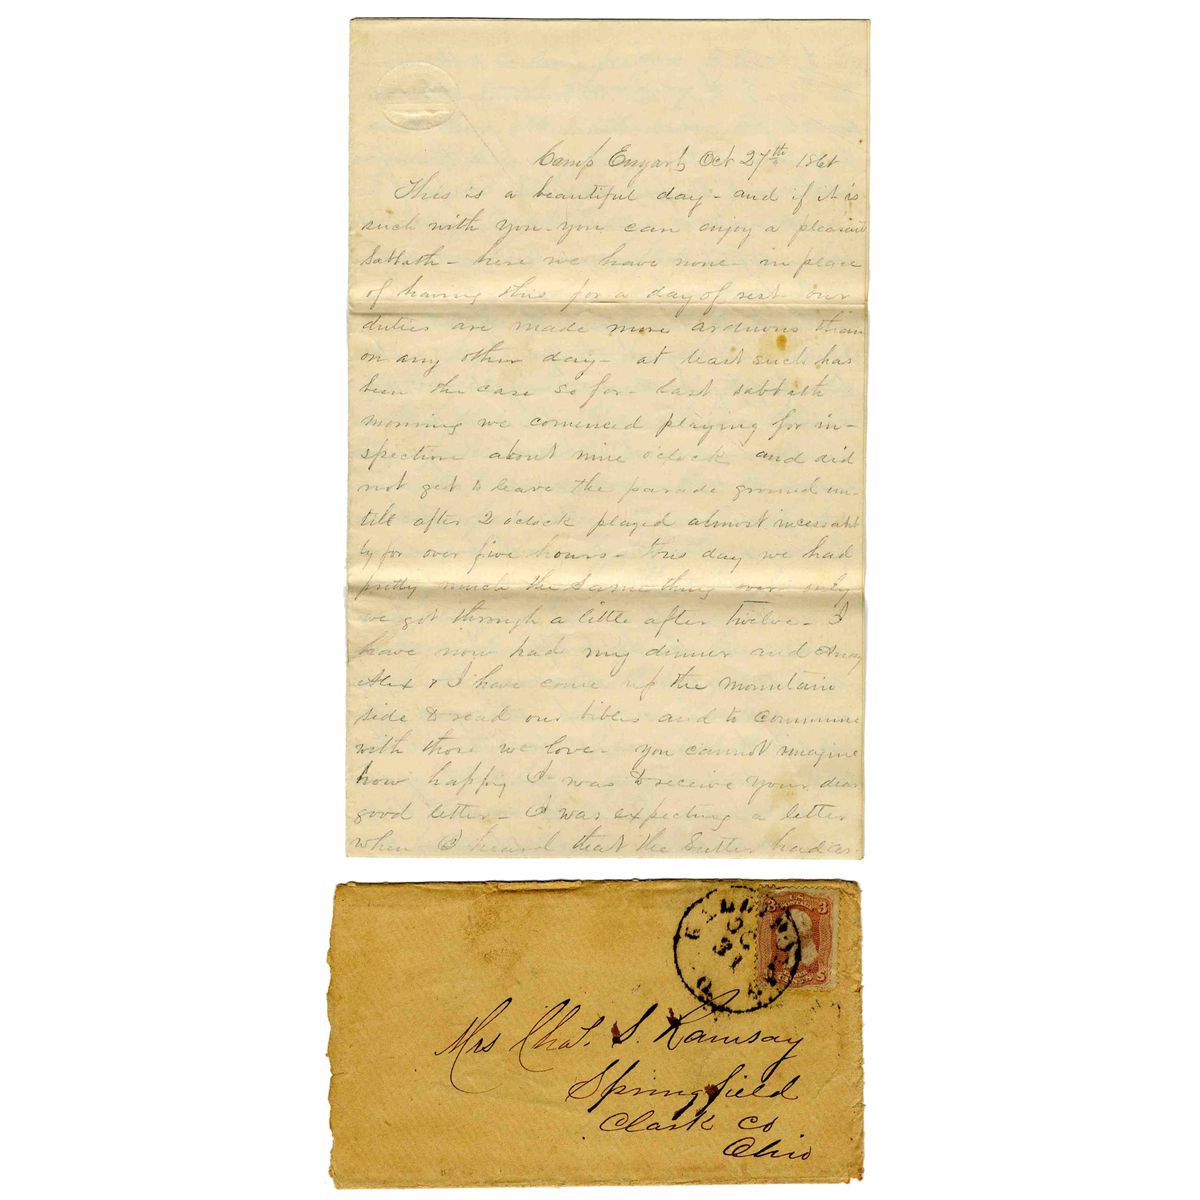 Camp Enyart, Oct 27th 1861
This is a beautiful day - and if it is
such with you - you can enjoy a pleasant
Sabbath - here we have none - in place
of having this for a day of rest - our
duties are made more arduous than
on any other day - at least such has
been the case so far - Last Sabbath
morning we comenced playing for in-
spection about nine o'clock and did
not get to leave the parade ground un-
till after 2 o'clock played almost incessant
ly for over five hours - This day we had
pretty much the same thing over only
we got through a little after twelve - I
have now had my dinner and
Alex & I have come up the mountain
side to read our bibles and to commune
with those we love - you cannot imagine
how happy I was to receive your dear
good letter - I was expecting a letter
when I heard that the Sutler had ar
GALLIPOLIS
OCT
31
O
U.S.
POSTAGE
3 3
U S
THREE
CENTS
Mrs Chas. S. Ramsay
Springfield
Clark Co
Ohio